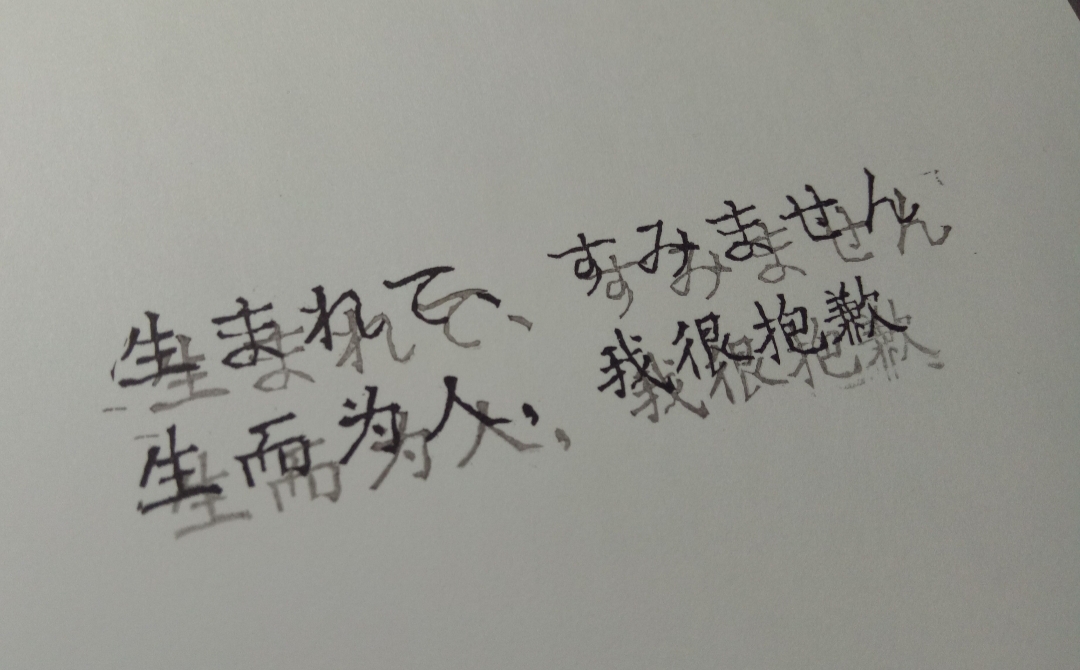 生まれて、すみません
生而为人,我很抱歉